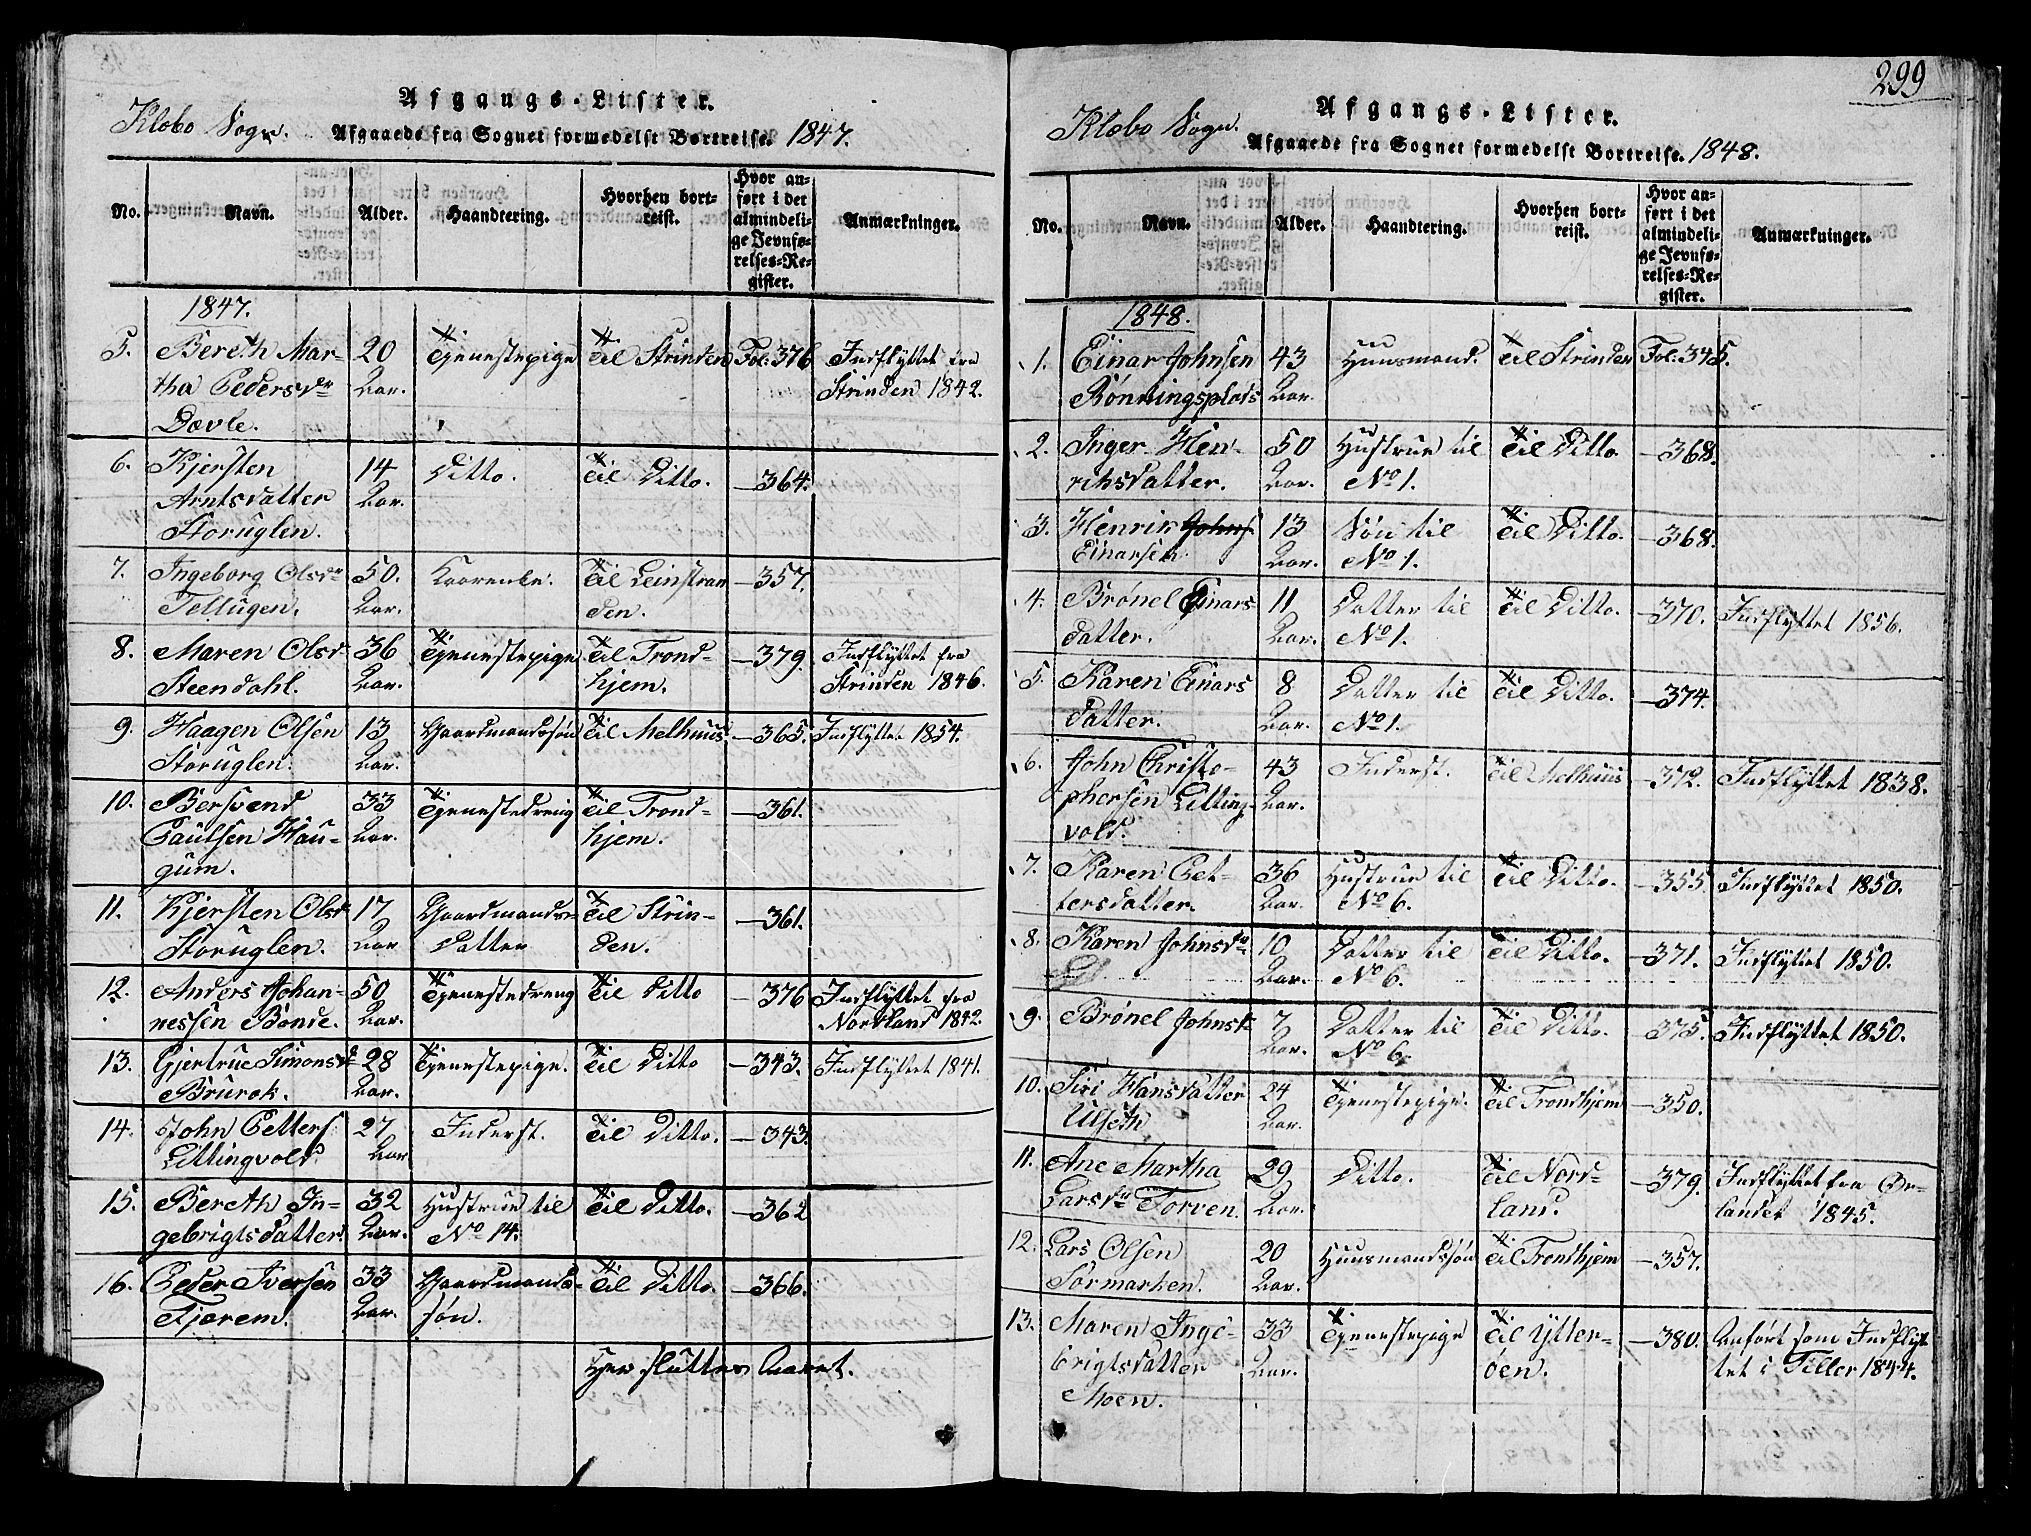 Klæbo Sogn.
Afgangs-Lister.
Afgaaede fra Sognet formedelst Bortreise. 1847.
No. Navn. Alder. Haandtering. Hvorhen bort-
reist. Hvor an-
ført i det
almindeli-
ge Jevnfø-
relses-Re-
gister. Anmærkninger.
1847.
5. Bereth Mar- 20 Tjenestepige til Strinden Fol: 376 Indflyttet fra
tha Pedersdr Aar. Strinden 1842.
Davle.
6. Kjersten 14 Ditto. til Ditto. — 364.
Arntsdatter Aar.
Storuglen.
7. Ingeborg Olsdr 50. Kaarenke. til Leinstran — 357.
Tellugen. Aar. den.
8. Maren Olsdr 36 Tjenestepige til Trond- — 379. Indflyttet fra
Steendahl. Aar. hjem. Strinden 1846.
9. Haagen Olsen 13 Gaardmandssøn til Melhuus. — 365. Indflyttet 1854.
Storuglen. Aar.
10. Bersvend 33 Tjenestedreng til Trond- — 361.
Paulsen Hau- Aar. hjem.
gum.
11. Kjersten Olsdr 17 Gaardmands- til Strin- — 361.
Storuglen. Aar datter den.
12. Anders Johan- 50 Tjenestedreng til Ditto — 376 Indflyttet fra
nessen Bonde. Aar. Nordland 1842.
13. Gjertrue Simonsdr 28 Tjenestepige. til Ditto — 343. Indflyttet 1841.
Brurok. Aar.
14. John Petters 27 Inderst. til Ditto. — 343.
Littingvold. Aar
15. Bereth In- 32 Hustrue til til Ditto. — 362
gebrigtsdatter Aar. No 14.
16. Peder Iversen 33 Gaardmands- til Ditto. — 366.
Tjærem. Aar. søn.
Her slutter Aaret.
299
Klæbo Sogn.
Afgangs-Lister.
Afgaaede fra Sognet formedelst Bortreise. 1848.
No. Navn. Alder. Haandtering. Hvorhen bort-
reist. Hvor an-
ført i det
almindeli-
ge Jevnfø-
relses-Re-
gister. Anmærkninger.
1848.
1. Einar Johnsen 43 Huusmand. til Strinden Fol: 345.
Rønningsplads Aar.
2. Inger Hen- 50 Hustrue til til Ditto — 368.
richsdatter. Aar. No 1.
3. Henrik Johns 13 Søn til til Ditto. — 368.
Einarsen Aar. No 1.
4. Brønel Einars 11 Datter til til Ditto. — 370. Indflyttet 1856.
datter. Aar. No 1.
5. Karen Einars 8 Datter til til Ditto. — 374.
datter. Aar. No 1.
6. John Christo- 43 Inderst. til Melhuus — 372. Indflyttet 1838.
phersen Litting- Aar.
vold.
7. Karen Pet- 36 Hustrue til til Ditto. — 355. Indflyttet 1850.
tersdatter. Aar. No 6.
8. Karen Johnsdr 10 Datter til til Ditto. — 371. Indflyttet 1850.
Aar. No 6.
9. Brønel Johnsdr 7 Datter til til Ditto. — 375. Indflyttet 1850.
Aar. No 6.
10. Siri Hansdatter 24 Tjenestepige. til Trondhjem — 350.
Ulseth Aar.
11. Ane Martha 29 Ditto. til Nord- — 379. Indflyttet fra Ør-
Larsdr Torven. Aar. land. landet 1845.
12. Lars Olsen 20 Huusmandssøn til Trondhjem — 357.
Sørmarken. Aar.
13. Maren Inge- 33 Tjenestepige til Ytter- — 380. Anført som Indflyt
brigtsdatter Aar. øen. tet i Tiller 1844.
Moen.